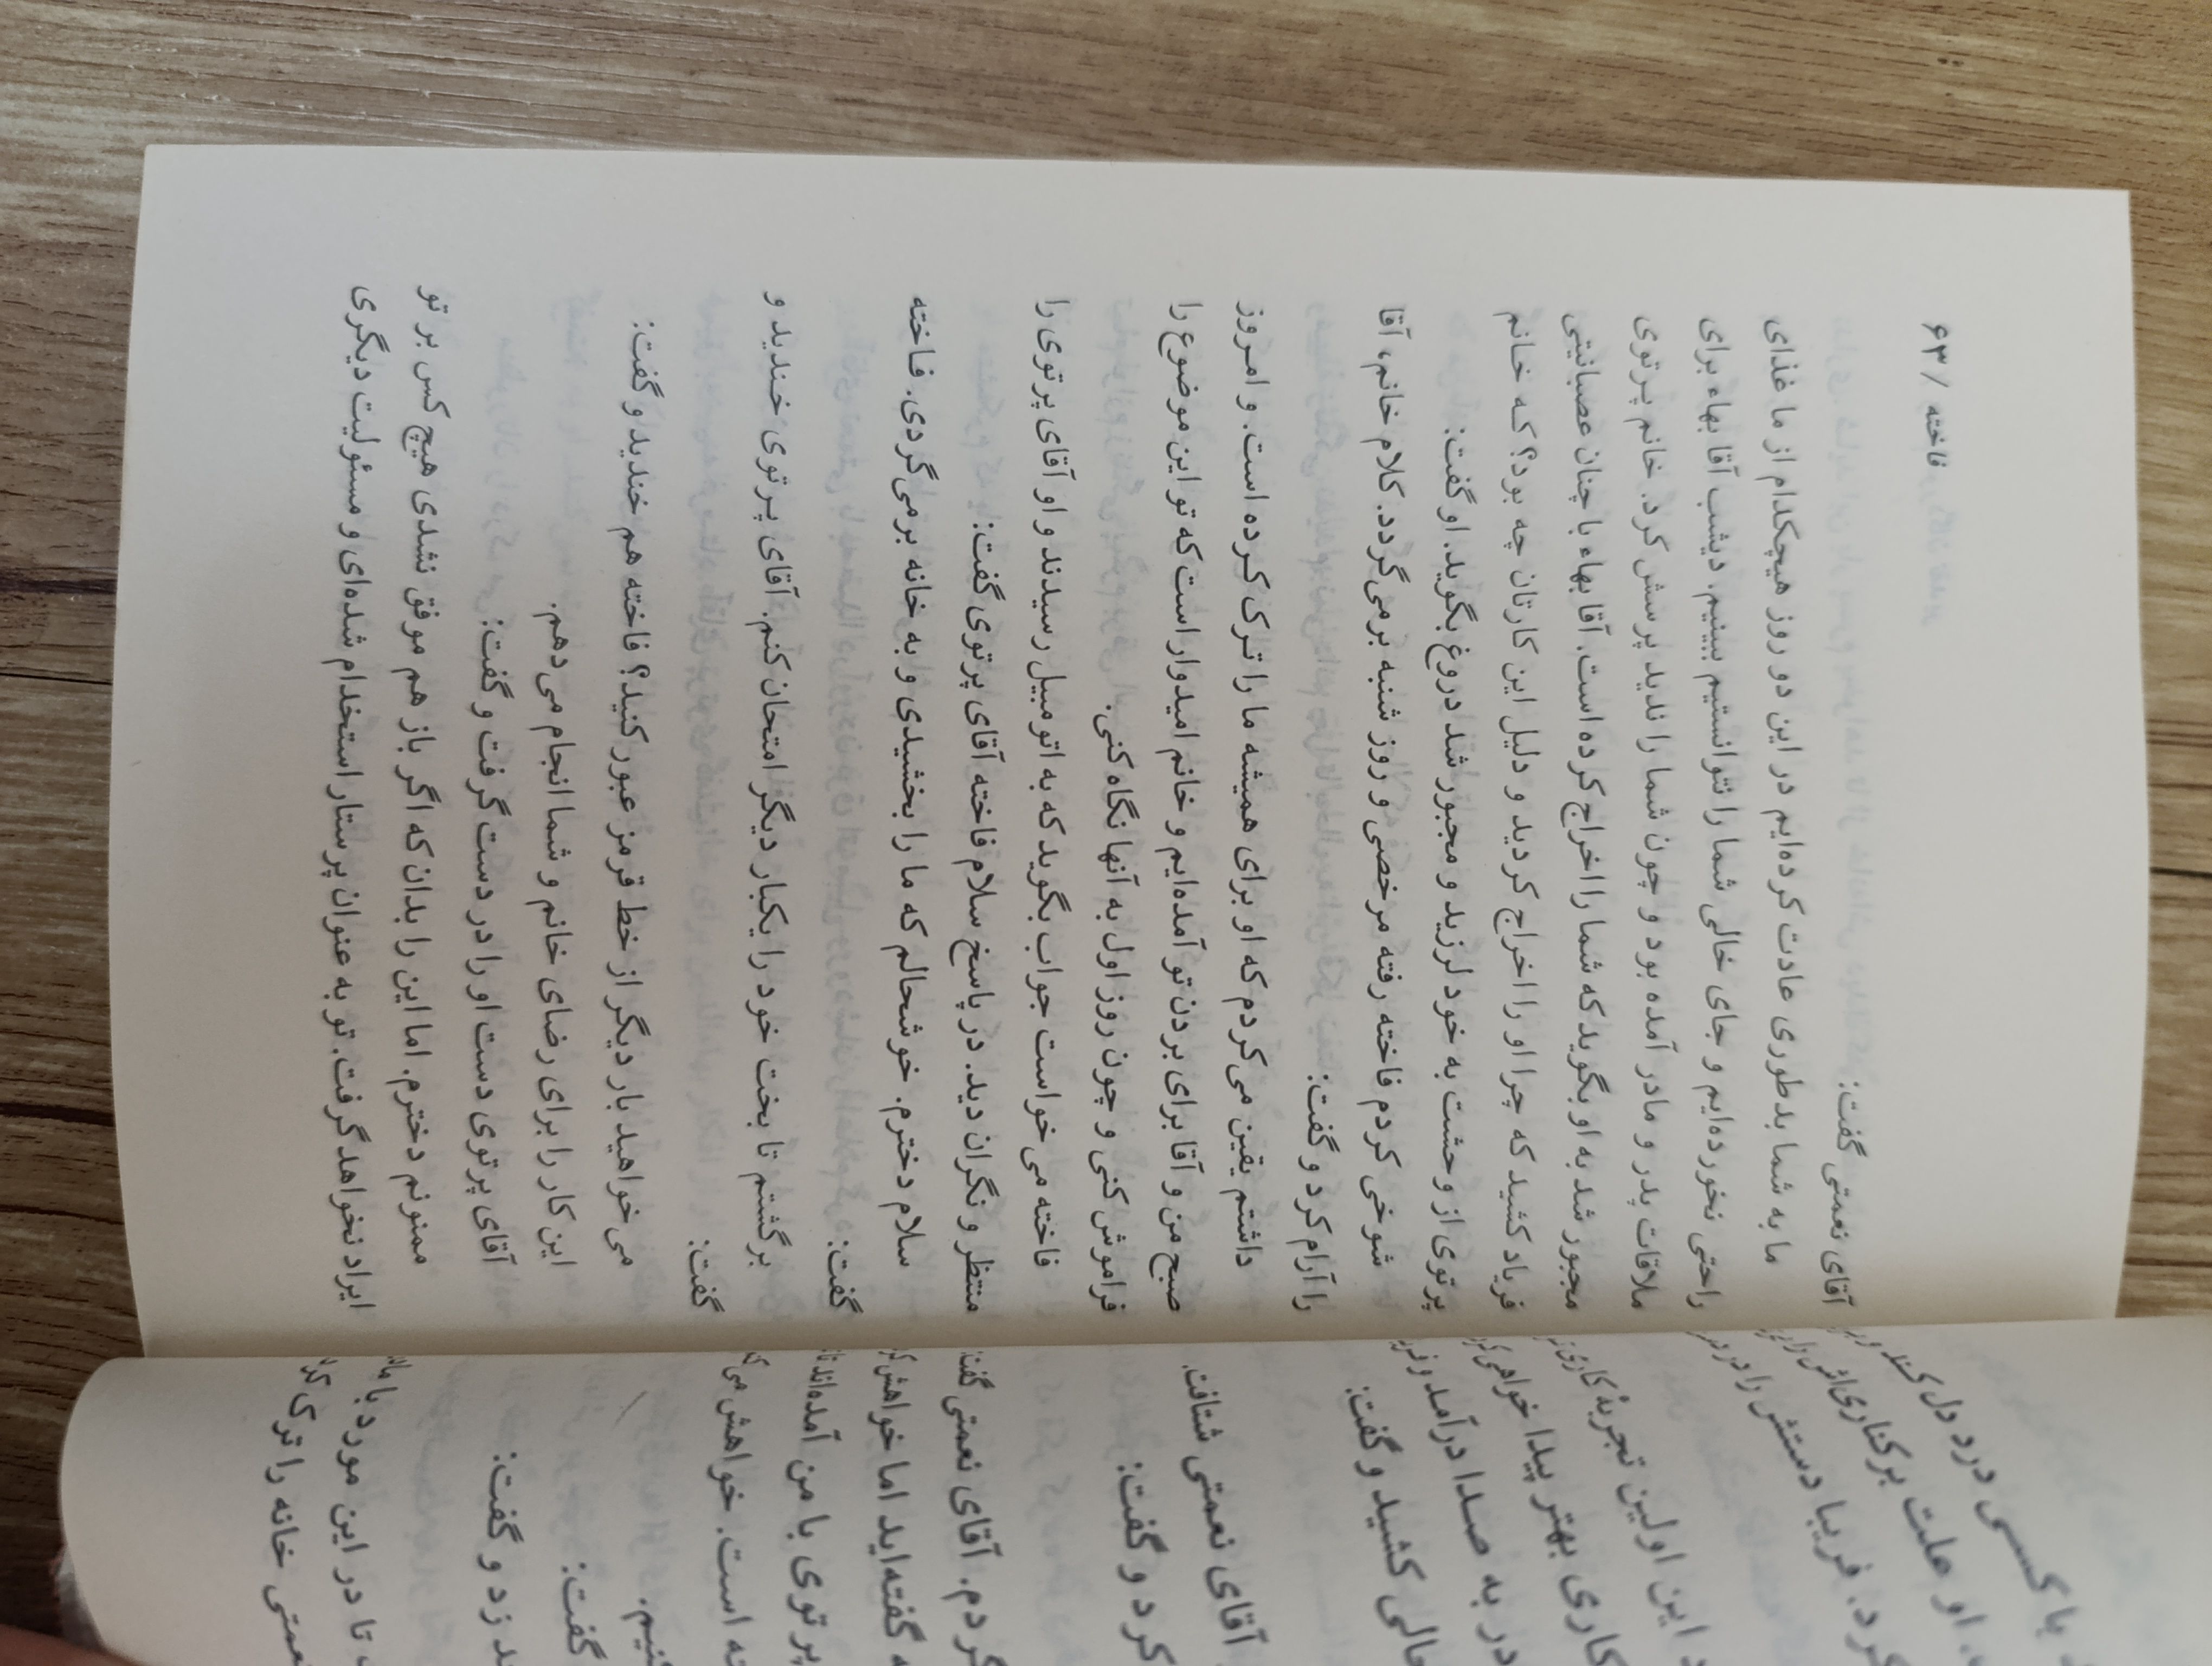 فاخته / ۶۳
آقای نعمتی گفت:
ما به شما بد طوری عادت کرده‌ایم در این دو روز هیچکدام از ما غذای
راحتی نخورده‌ایم و جای خالی شما را نتوانستیم ببینیم. دیشب آقا بهاء برای
ملاقات پدر و مادر آمده بود و چون شما را ندید پرسش کرد. خانم پرتوی
مجبور شد به او بگوید که شما را اخراج کرده است. آقا بهاء با چنان عصبانیتی
فریاد کشید که چرا او را اخراج کردید و دلیل این کارتان چه بود؟ که خانم
پرتوی از وحشت به خود لرزید و مجبور شد دروغ بگوید. او گفت:
شوخی کردم فاخته رفته مرخصی و روز شنبه برمی‌گردد. کلام خانم، آقا
را آرام کرد و گفت:
داشتم یقین می‌کردم که او برای همیشه ما را ترک کرده است. و امروز
صبح من و آقا برای بردن تو آمده‌ایم و خانم امیدوار است که تو این موضوع را
فراموش کنی و چون روز اول به آنها نگاه کنی.
فاخته می‌خواست جواب بگوید که به اتومبیل رسیدند و او آقای پرتوی را
منتظر و نگران دید. در پاسخ سلام فاخته آقای پرتوی گفت:
سلام دخترم. خوشحالم که ما را بخشیدی و به خانه برمی‌گردی. فاخته
گفت:
برگشتم تا بخت خود را یکبار دیگر امتحان کنم. آقای پرتوی خندید و
گفت:
می‌خواهید بار دیگر از خط قرمز عبور کنید؟ فاخته هم خندید و گفت:
این کار را برای رضای خانم و شما انجام می‌دهم.
آقای پرتوی دست او را در دست گرفت و گفت:
ممنونم دخترم. اما این را بدان که اگر باز هم موفق نشدی هیچ کس بر تو
ایراد نخواهد گرفت. تو به عنوان پرستار استخدام شده‌ای و مسئولیت دیگری
با کسی درد دل کند
او علت برکناری‌اش را
کرد. فریبا دستش را در
این اولین تجربهٔ کاری
کاری بهتر پیدا خواهی
در به صدا درآمد و
کشید و گفت:
آقای نعمتی شتافت.
کرد و گفت:
کردم. آقای نعمتی
گفته‌اید اما خواهش
پرتوی با من آمده‌اند تا
است. خواهش می
گفت:
زد و گفت:
تا در این مورد با
خانه را ترک